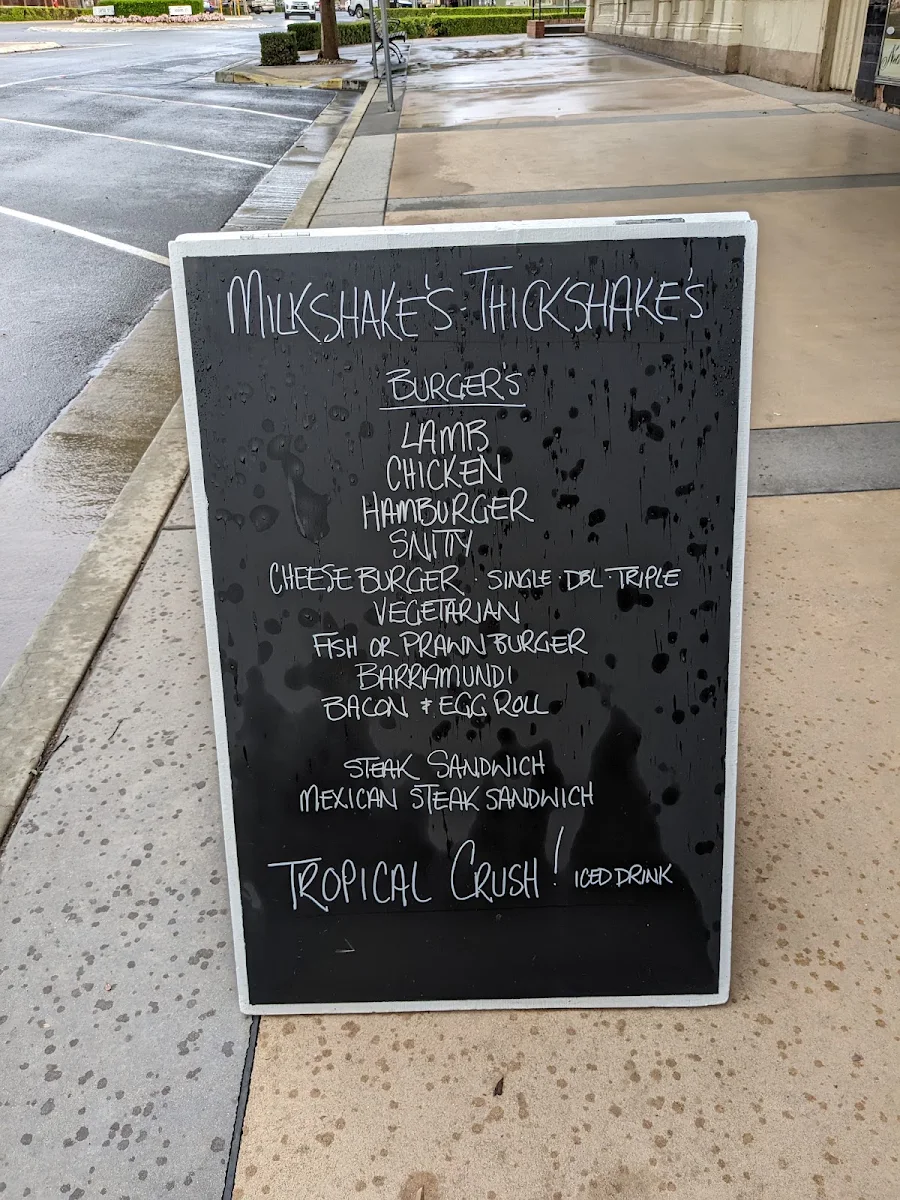 MILKSHAKE'S - THICKSHAKE'S
BURGER'S
LAMB
CHICKEN
HAMBURGER
SNITTY
CHEESE BURGER · SINGLE · DBL · TRIPLE
VEGETARIAN
FISH OR PRAWN BURGER
BARRAMUNDI
BACON & EGG ROLL
STEAK SANDWICH
MEXICAN STEAK SANDWICH
TROPICAL CRUSH! ICED DRINK